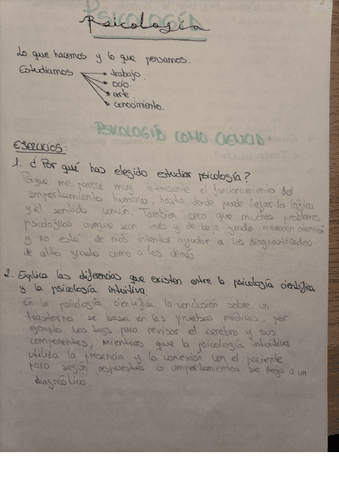 Psicología
Lo que hacemos y lo que pensamos.
Estudiamos → trabajo.
→ ocio.
→ arte.
→ conocimiento.
PSICOLOGÍA COMO CIENCIA:
EJERCICIOS:
1. ¿Por qué has elegido estudiar psicología?
Porque me parece muy interesante el funcionamiento del
comportamiento humano, hasta donde puede llegar la lógica
y el sentido común. También creo que muchos problemas
psicológicos aunque son leves y de bajo grado merecen atención
y no está de más intentar ayudar a los diagnosticados
de alto grado como a los demás.
2. Explica las diferencias que existen entre la psicología científica
y la psicología intuitiva
En la psicología científica la conclusión sobre un
trastorno se basa en las pruebas médicas, por
ejemplo los tacs para revisar el cerebro y sus
componentes, mientras que la psicología intuitiva
utiliza la presencia y la conexión con el paciente
para según respuestas o comportamientos se llega a un
diagnóstico.